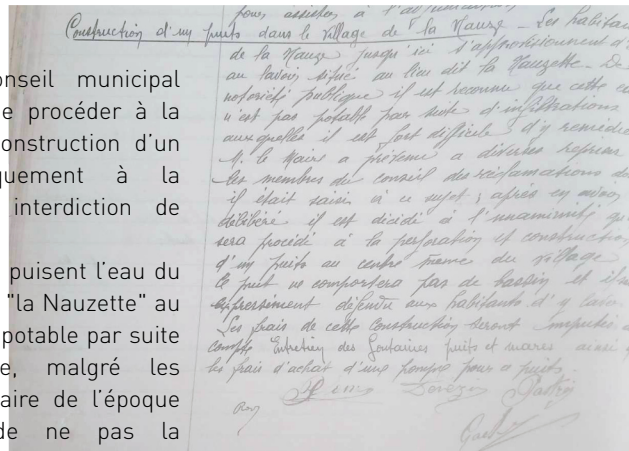 onseil municipal
e procéder à la
onstruction d'un
quement à la
interdiction de
puisent l'eau du
"la Nauzette" au
potable par suite
e, malgré les
aire de l'époque
de ne pas la
pour assister à l'adjudication
Construction d'un puits dans le village de "la Nauze - Les habitan
de la Nauze jusqu'ici s'approvisionnent d'
au lavoir situé au lieu dit la Nauzette. De
notoriété publique il est reconnu que cette ea
n'est pas potable par suite d'infiltrations
auxquelles il est fort difficile d'y remédie
M. le Maire a présenté a diverses reprises
les membres du conseil des réclamations do
il était saisi à ce sujet ; après en avoir
délibéré il est décidé à l'unanimité qu
sera procédé à la perforation et construction
d'un puits au centre même du village
Le puit ne comportera pas de bassin et il
expressément défendu aux habitants d'y laver
Les frais de cette construction seront imputés a
compte Entretien des Fontaines puits et mares ainsi q
les frais d'achat d'une pompe pour ce puits.